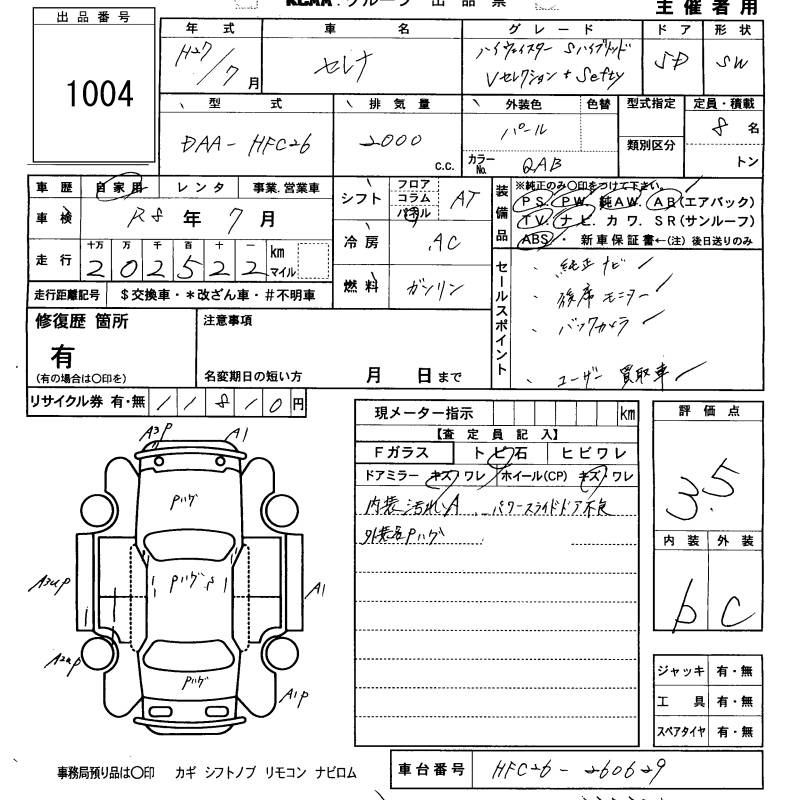 KCAA・グループ 出品票
主催者用
出品番号
1004
年式 車名 グレード ドア 形状
H27/7月 セレナ ハイウェイスター Sハイブリッド
Vセレクション + Sefty 5D SW
型式 排気量 外装色 色替 型式指定 定員・積載
DAA-HFC26 2000 c.c. パール 8名
カラーNo. QAB 類別区分 トン
車歴 自家用 レンタ 事業.営業車
車検 R8年 7月
走行 十万 万 千 百 十 一 km マイル
202522
走行距離記号 $交換車・*改ざん車・#不明車
シフト フロア コラム パネル AT
冷房 AC
燃料 ガソリン
装備品
※純正のみ〇印をつけて下さい。
PS. PW. 純AW. AB(エアバック)
TV. ナビ. カワ. SR(サンルーフ)
ABS・ 新車保証書←(注) 後日送りのみ
セールスポイント
純正ナビ
後席モニター
バックカメラ
ユーザー買取車
修復歴 箇所
有
(有の場合は〇印を)
注意事項
名変期日の短い方 月 日まで
リサイクル券 有・無 11810円
現メーター指示 km
【査定員記入】
Fガラス トビ石 ヒビワレ
ドアミラー キズ ワレ ホイール(CP) キズ・ワレ
内装汚れA パワースライドドア不良
外装各Pハゲ
評価点
3.5
内装 外装
b C
A3P A1
Pハゲ
Pハゲ
A1
A1P
Pハゲ
ジャッキ 有・無
工具 有・無
スペアタイヤ 有・無
事務局預り品は〇印 カギ シフトノブ リモコン ナビロム
車台番号 HFC26-260629